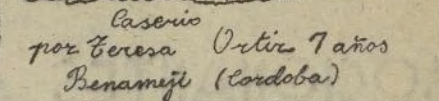 Caserio
por Teresa Ortiz 7 años
Benameji (Cordoba)